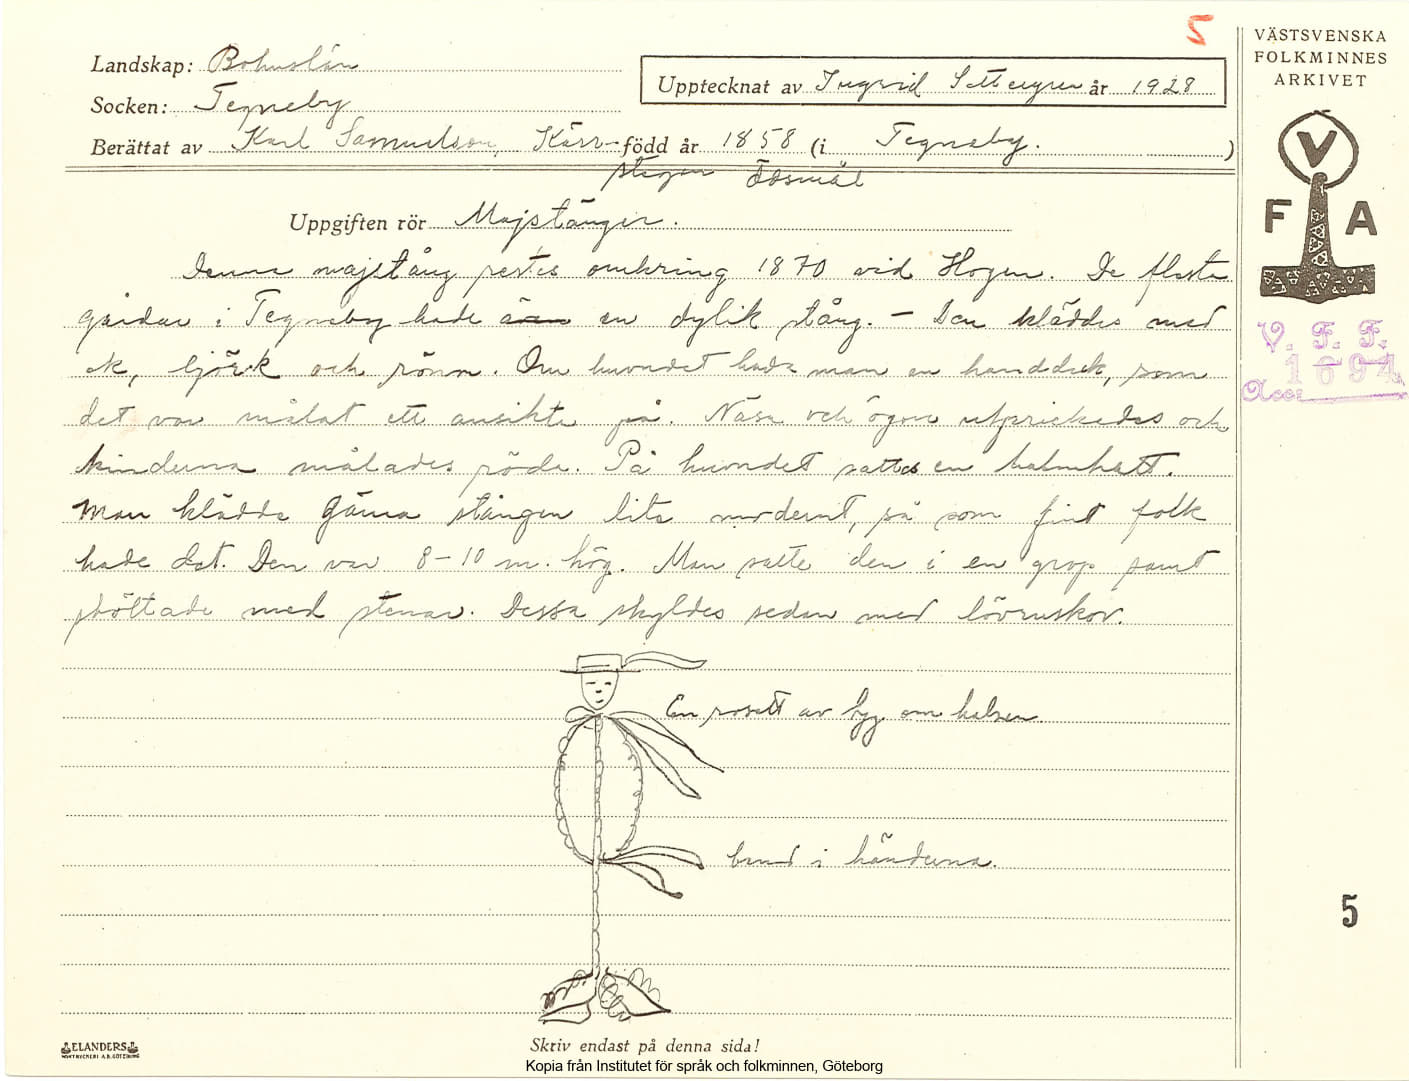 5
VÄSTSVENSKA
FOLKMINNES
ARKIVET
Landskap: Bohuslän
Upptecknat av Ingrid år 1928
Socken: Tegneby
Berättat av Karl Samuelson, Kärr- född år 1858 (i Tegneby.)
stegen Ödsmål
V
F A
Uppgiften rör Majstänger.
Denna majstång restes omkring 1870 vid Hogen. De flesta
gårdar i Tegneby hade en dylik stång. - Den kläddes med
ek, björk och rönn. Om huvudet hade man en handduk, som
det var målat ett ansikte på. Näsa och ögon utprickades och
kinderna målades röda. På huvudet sattes en halmhatt.
Man klädde gärna stången lite modernt, så som fint folk
hade det. Den var 8-10 m. hög. Man satte den i en grop samt
stöttade med stenar. Dessa skyldes sedan med lövruskor.
V. F. F.
1694
Acc:
En rosett av tyg om halsen.
band i händerna.
5
ELANDERS
BOKTRYCKERI A.B. GÖTEBORG
Skriv endast på denna sida!
Kopia från Institutet för språk och folkminnen, Göteborg